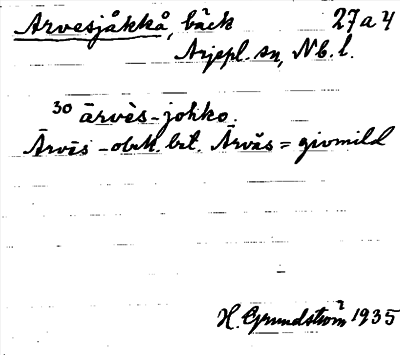 Arvesjåkkå, bäck 27a4
Arjepl. sn, Nb. l.
30 ārvès-johko.
Ārvìs - obek. bet. Ārvăs = givmild
H. Grundström 1935